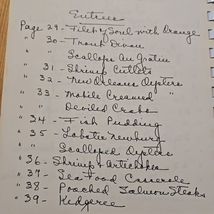 Entrees
Page 29 - Filet of Soul with Orange
" 30 - Trout Divan
" " Scallops Au Gratin
" 31 - Shrimp Cutlets
" 32 - New Orleans Oysters
" 33 - Mobile Creamed "
" " Deviled Crabs
" 34 - Fish Pudding
" 35 - Lobster Newburg
" " Scalloped Oysters
" 36 - Shrimp & Artichokes
" 37 - Sea Food Casserole
" 38 - Poached Salmon Steaks
" 39 - Kedgeree